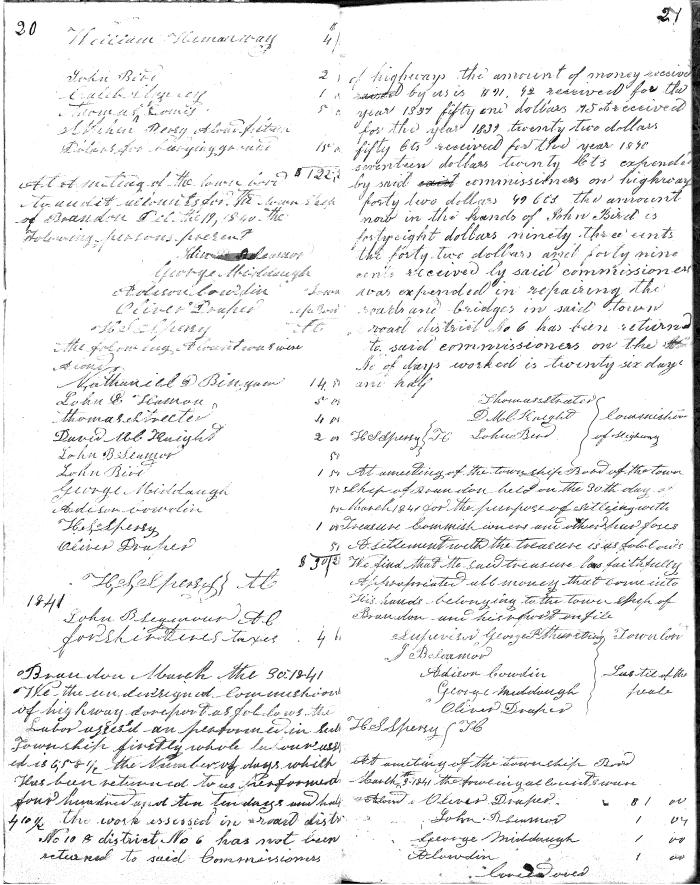 20
William Hemanway 4
John Bird 2
1
Thomas 5
Stephen Persy
Dolars for burying ground 15
$
At at meting of the town bord
to audit acounts for the town ship
of Brandon Feb the 19, 1840 the
following persons present
Seamor
George Middaugh
Adison Cowdin
Oliver Draper
H S Spersy
the following acount was were
alowd
Nathaniell D Bingam 14
John B Seamor 5
Thomas Streeter 4 00
David Mc Knight 2 00
John B Seamor
John Bird 1
George Middaugh
Adison Cowdin
H S Spersy 1 00
Oliver Draper
$
H S Spersy } T C
1841
John B Seymour
for taxes 4
Brandon March the 30 1841
We the undersigned Commishion
of highway do report as fol lows the
Labor asesed an performed in said
Township firstly whole labour ases
ed is 658 ½ the Number of days which
Has been returned to us performed
four hundred and ten ten days and half
410 ½ the work assessed in road distr
No 10 & district No 6 has not been
returned to said Commissioners
21
of highways the amount of money receive
by us is $91, 42 received for the
year 1837 fifty one dollars 75 ct received
for the year 1839 twenty two dollars
fifty cts received for the year 1840
seventeen dollars twenty cts expended
by said commissioners on highway
forty two dollars 49 cts the amount
now in the hands of John Bird is
fortyeight dollars ninety three cents
the forty two dollars and forty nine
cents received by said commissioners
was expended in repairing the
roads and bridges in said town
road district No 6 has been returned
to said commissioners on the
No of days worked is twenty six days
and half
Thomas Streeter
D Mc Knight } Commishion
H S Spersy } T C John Bird of Highway
At ameeting of the town ship Bord of the town
ship of Brandon held on the 30th day of
March 1841 for the purpose of setleing with
Treasure Commish iners and other purposes
A settlement with the treasure is as fol lows
We find that the said treasure has faithfully
Apropriated all money that come into
His hands belonging to the town ship of
Brandon and his report on file
Supervisor George P Thursting Town bord
J B Seamor
Adison Cowdin } Justic of the
George Middaugh peace
Oliver Draper
H S Spersy } T C
At ameting of the township Bord
March 1841 the folowing acounts were
Alowd Oliver Draper $1 00
John B Seamor 1 00
George Middaugh 1 00
A Cowdin 1 00